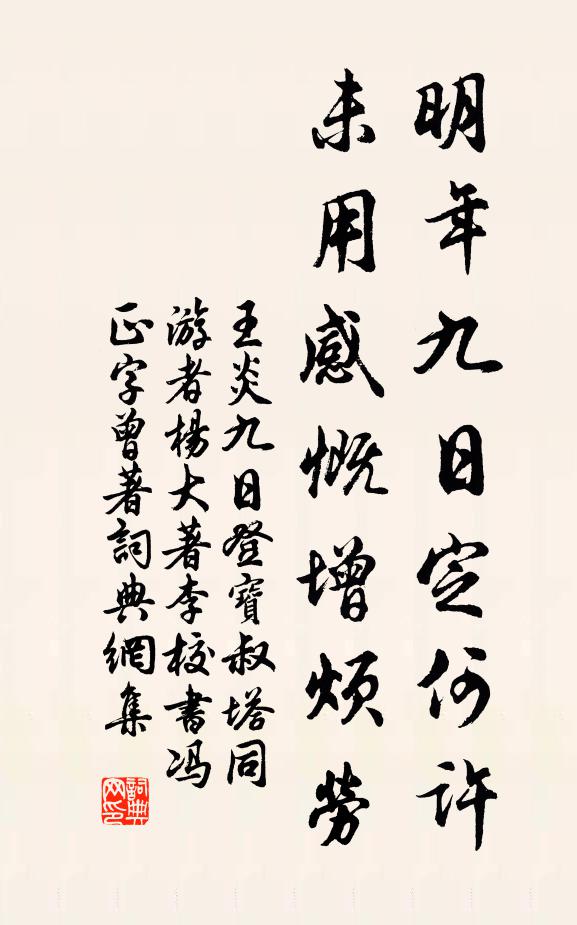 明年九日定何許
未用感慨增煩勞
王炎九日登寶叔塔同
游者楊大著李校書馮
正字曾著詞典網集
詞典
网印